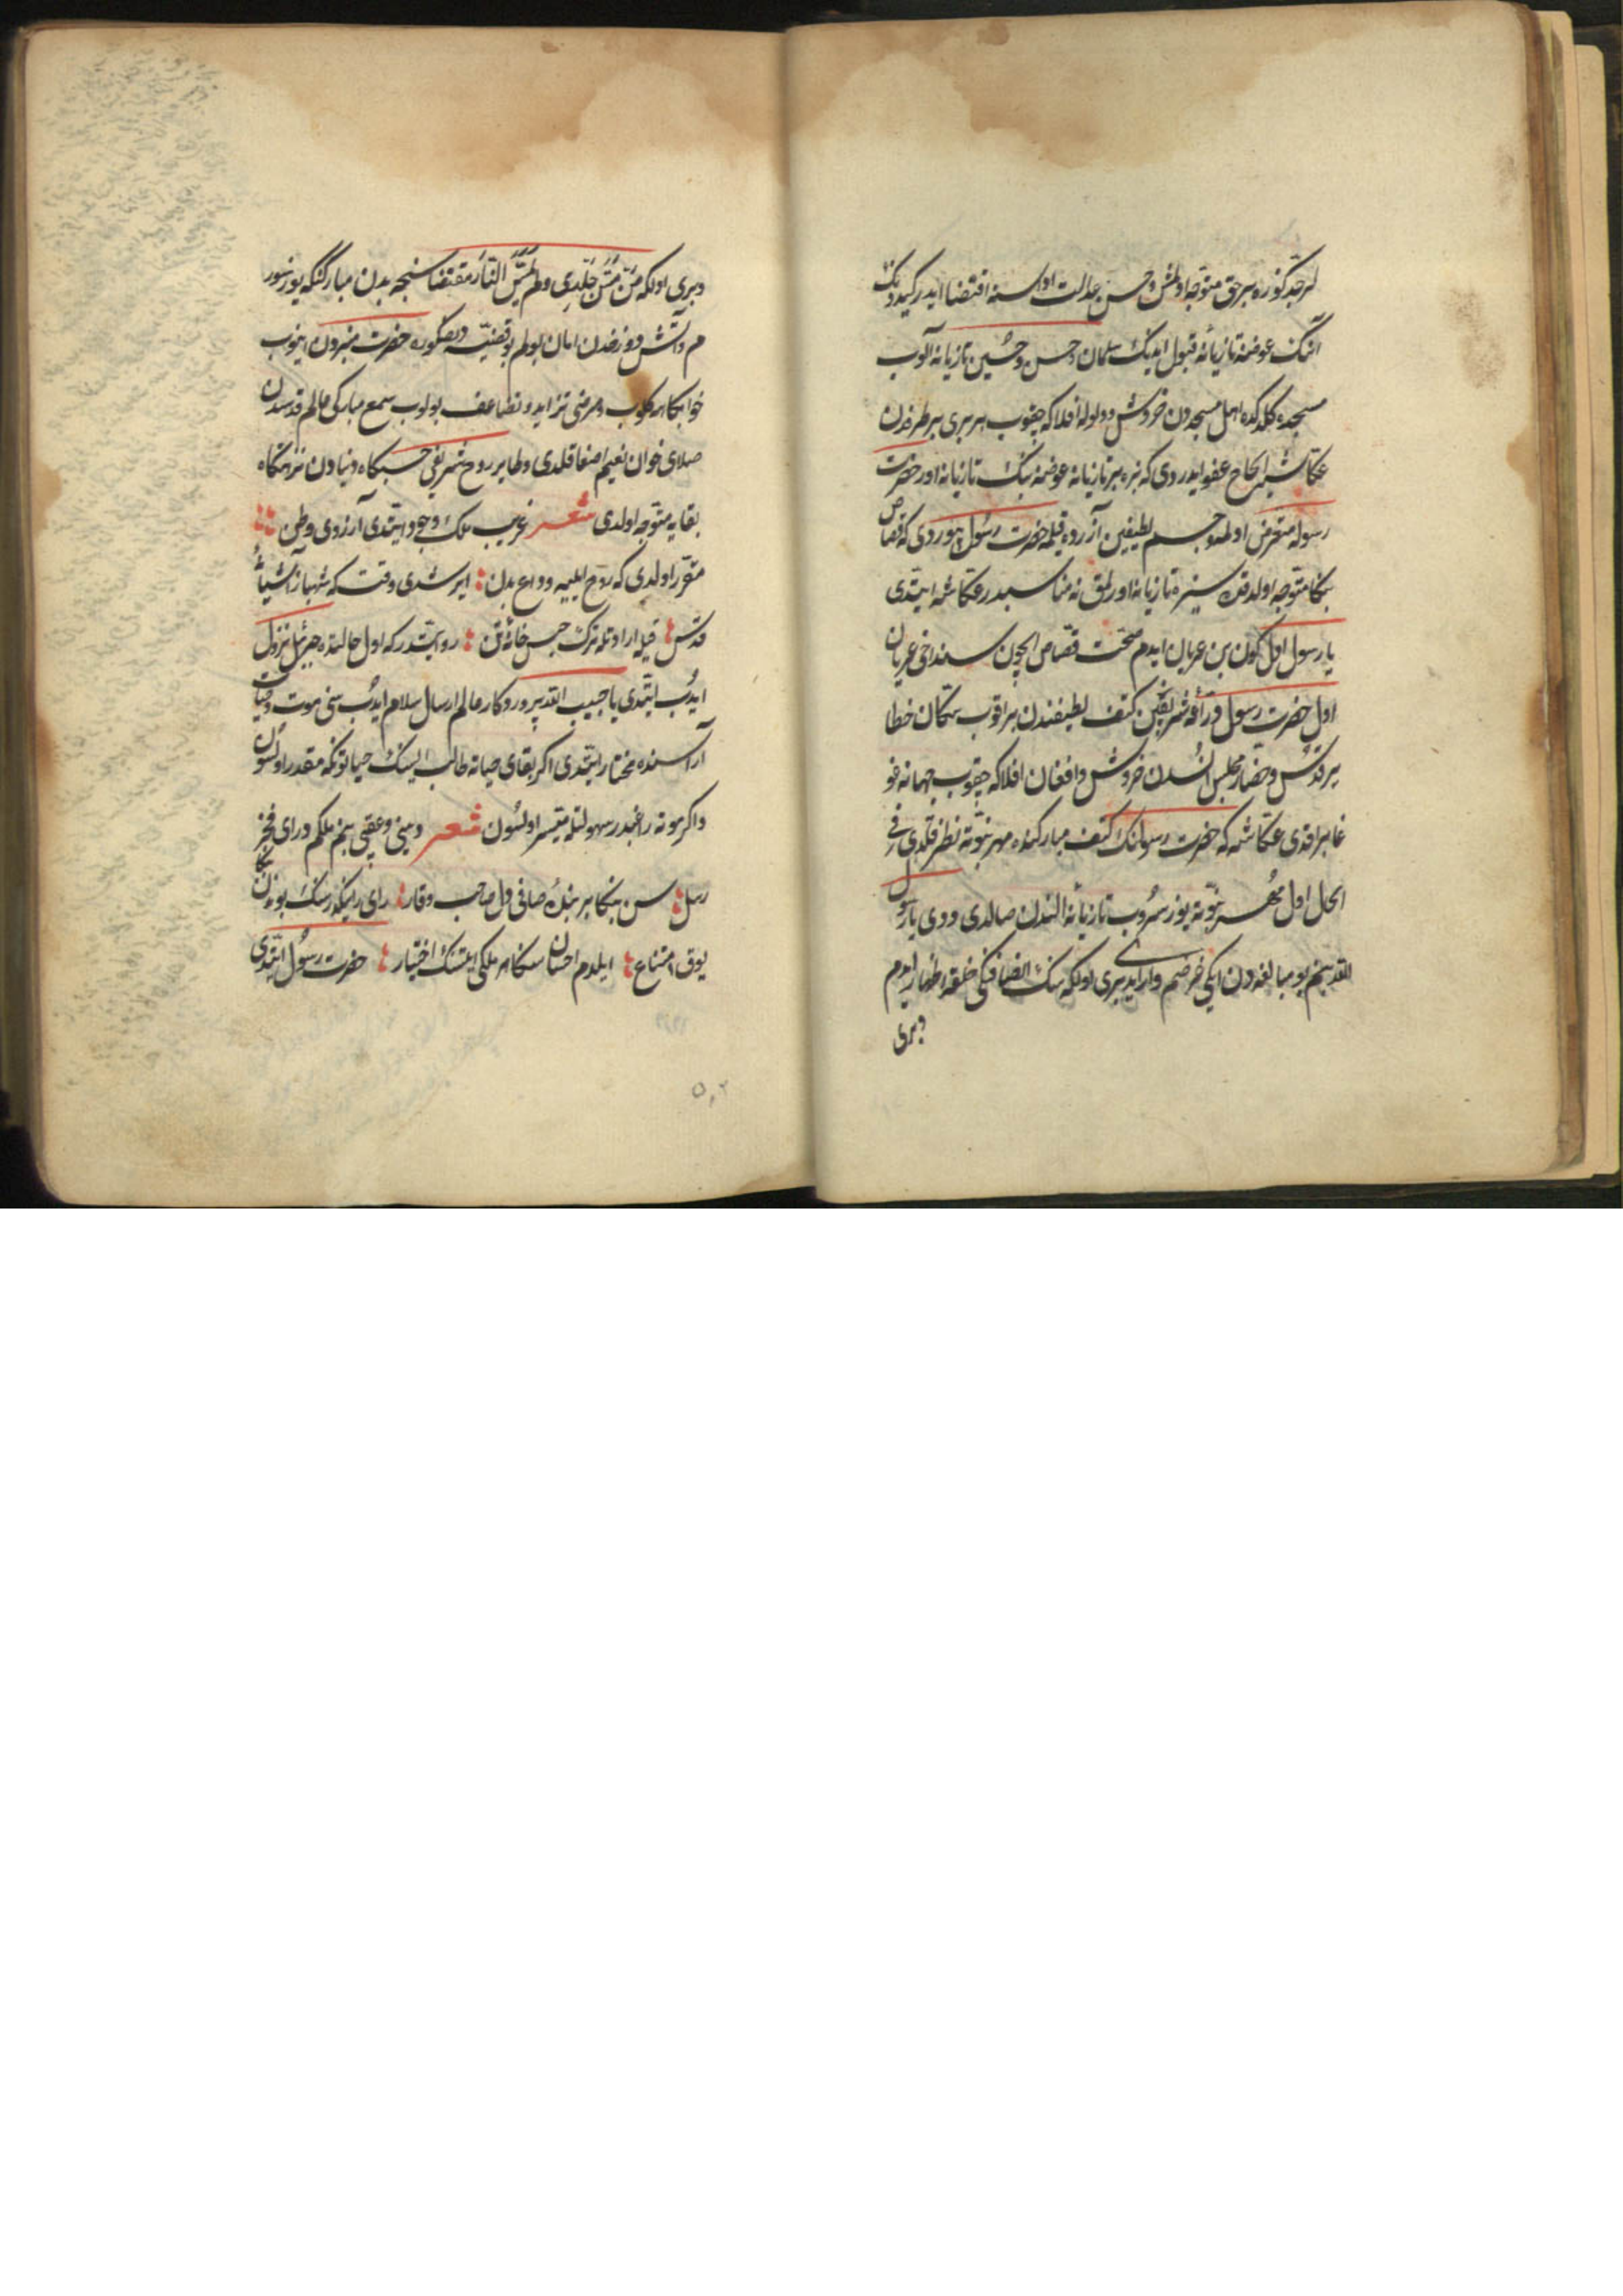 لر جدکوزه بر حق متوجه اولمش و حسن عدالت اول سنه اقتضا ایدر کیدونک
انک عوضنه تازیانه قبول ایدیک سلمان و حسن و حسین تازیانه آلوب
مسجده کلدکده اهل مسجددن خروش و ولوله افلاکه چقوب هر بری بر طرفدن
عکاشیه الحاح عفو ایدردی که بزه بر تازیانه عوضنه بیک تازیانه اور حضرت
رسوله متعرض اولمه و جسم لطیفین آزرده قیلمه حضرت رسول بیوردی که قصاص
بکا متوجه اولدقده سیزه تازیانه اورلمق نه مناسبدر عکاشه ایتدی
یا رسول اول کون بن عریان ایدم صحت قصاص ایچون سنداخی عریان
اول حضرت رسول دراعه شریفین کتف لطیفندن براقوب سکان خطایر
قدس و حضار مجلس انسدن خروش و افغان افلاکه چقوب جهانه غو
غا براقدی عکاشه که حضرت رسولنک کتف مبارکنده مهر نبوته نظر قلدی فی
الحال اول مهر نبوته یوز سروب تازیانه النندن صالدی و ودی یا رسول
الله بنم بو مبالغه دن ایکی غرضم وار ایدی بری اولکه سنک انصافکی خلقه اظهار ایدم
و بری
و بری اولکه من مس جلدی و لم تمس النار مقتضاسنجه بدن مبارکنکه یوز سور
م و آتش دوزخدن امان بولم بو قضیه دن صکوره حضرت منبردن اینوب
خوابکاهه کلوب و مرضی تزاید و تضاعف بولوب سمع مبارکی عالم قدسدن
صلای خوان نعیم اصغا قلدی و طایر روح شریفی حبسکاه دنیادن نزهتکاه
بقایه متوجه اولدی شعر غریب ملک وجود ایتدی آرزوی وطن
مقرر اولدی که روح ایلیه وداع بدن ایرشدی وقت که شهباز آشیانه
قدس قیله ارادتله ترک حبس خانه تن روایتدر که اول حالتده جبرئیل نزول
ایدوب ایتدی یا حبیب الله پروردکار عالم ارسال سلام ایدوب سنی موت و حیات
آراسنده مختار ایتدی اکر بقای حیاته طالب ایسنک حیاتونکه مقدر اولسون
و اکر موته راغبدر سهولتله میسر اولسون شعر دینی و عقبی بنم ملکم ورای فخر
رسل سن بنکا بر بنده صافی دل صاحب وقار رای رایکدر سنک بوندن بنکا
یوق امتناع ایلدم احسان سکا هر ملکی ایتسنک اختیار حضرت رسول ایتدی